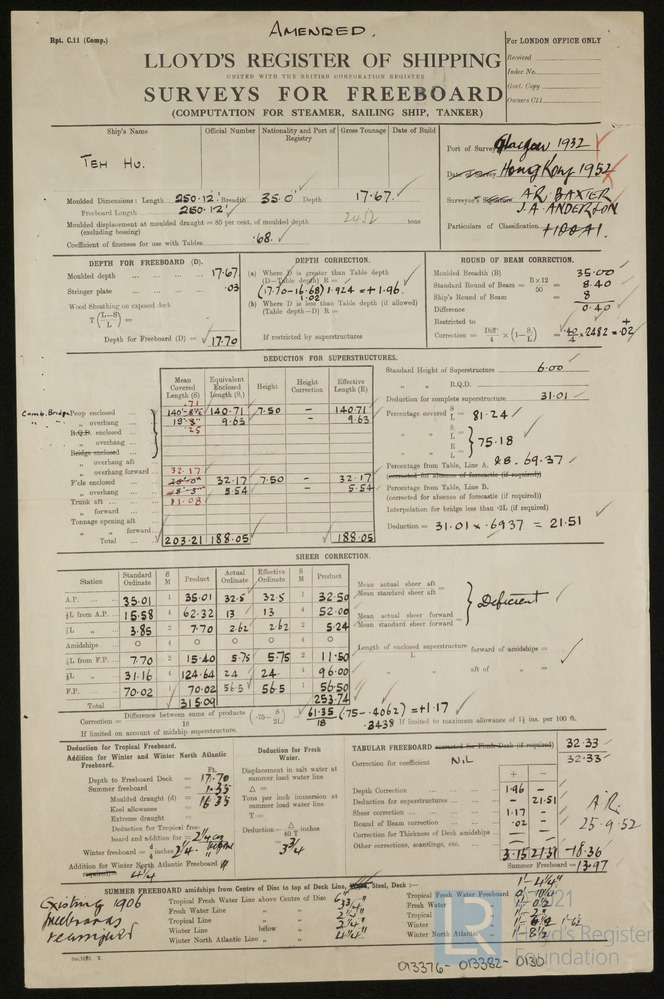 AMENDED.
Rpt. C.11 (Comp.)
For LONDON OFFICE ONLY
LLOYD'S REGISTER OF SHIPPING
Received
UNITED WITH THE BRITISH CORPORATION REGISTER
Index No.
SURVEYS FOR FREEBOARD
Govt. Copy
(COMPUTATION FOR STEAMER, SAILING SHIP, TANKER)
Owners C11
Ship's Name
Official Number
Nationality and Port of Registry
Gross Tonnage
Date of Build
TEH HU.
Port of Survey Glasgow 1932
Date of Survey Hong Kong 1952
Surveyor's Signature A.R. BAXTER
J.A. ANDERSON
Particulars of Classification +100A1.
Moulded Dimensions: Length 250.12' Breadth 35.0' Depth 17.67.
Freeboard Length 250.12'
Moulded displacement at moulded draught = 85 per cent. of moulded depth tons
(excluding bossing)
Coefficient of fineness for use with Tables .68.
DEPTH FOR FREEBOARD (D).
Moulded depth 17.67
Stringer plate .03
Wood Sheathing on exposed deck
T (L-S / L) =
Depth for Freeboard (D) = 17.70
DEPTH CORRECTION.
(a) Where D is greater than Table depth
(D—Table depth) R =
(17.70-16.68) 1.924 = +1.96.
1.02
(b) Where D is less than Table depth (if allowed)
(Table depth—D) R =
If restricted by superstructures
ROUND OF BEAM CORRECTION.
Moulded Breadth (B) 35.00
Standard Round of Beam = B×12 / 50 = 8.40
Ship's Round of Beam = 8
Difference 0.40
Restricted to
Correction = Diff. / 4 × (1-S/L) = .40 / 4 × .2482 = + .02
DEDUCTION FOR SUPERSTRUCTURES.
Mean Covered Length (S)
Equivalent Enclosed Length (S₁)
Height
Height Correction
Effective Length (E)
Comb. Bridge Poop enclosed 140.71 7.50 - 140.71
" overhang 9.63 " - 9.63
R.Q.D. enclosed
" overhang
Bridge enclosed
" overhang aft
" overhang forward
F'cle enclosed 32.17 32.17 7.50 - 32.17
" overhang 5.54 - 5.54
Trunk aft 11.08
" forward
Tonnage opening aft
" " forward
Total 203.21 188.05 188.05
Standard Height of Superstructure 6.00
" " R.Q.D.
Deduction for complete superstructure 31.01
Percentage covered S/L = 81.24
" S₁/L =
" E/L = 75.18
Percentage from Table, Line A. 69.37
(corrected for absence of forecastle (if required))
Percentage from Table, Line B.
(corrected for absence of forecastle (if required))
Interpolation for bridge less than ·2L (if required)
Deduction = 31.01 x .6937 = 21.51
SHEER CORRECTION.
Station
Standard Ordinate
S M
Product
Actual Ordinate
Effective Ordinate
S M
Product
A.P. 35.01 1 35.01 32.5 32.5 1 32.50
⅙L from A.P. 15.58 4 62.32 13 13 4 52.00
⅓L " 3.85 2 7.70 2.62 2.62 2 5.24
Amidships 0 4 0 0 0 4 0
⅓L from F.P. 7.70 2 15.40 5.75 5.75 2 11.50
⅙L " 31.16 4 124.64 24 24. 4 96.00
F.P. 70.02 1 70.02 56.5 56.5 1 56.50
Total 315.09 253.74
Mean actual sheer aft
Mean standard sheer aft =
Mean actual sheer forward
Mean standard sheer forward =
Deficient
Length of enclosed superstructure forward of amidships =
L
" aft of " =
Correction = Difference between sums of products / 18 (·75 — S / 2L) = 61.35 / 18 (.75 - .4062) = +1.17
.3438
If limited to maximum allowance of 1½ ins. per 100 ft.
If limited on account of midship superstructure.
Deduction for Tropical Freeboard.
Addition for Winter and Winter North Atlantic Freeboard.
Ft.
Depth to Freeboard Deck = 17.70
Summer freeboard = 1.35
Moulded draught (d) = 16.35
Keel allowance =
Extreme draught =
Deduction for Tropical freeboard and addition for
Winter freeboard = d / 4 inches
Addition for Winter North Atlantic Freeboard (if required) = 4¼
Deduction for Fresh Water.
Displacement in salt water at summer load water line
Δ =
Tons per inch immersion at summer load water line
T =
Deduction = Δ / 40 T inches
= 3¾
TABULAR FREEBOARD corrected for Flush Deck (if required) 32.33
Correction for coefficient NIL 32.33
+ -
Depth Correction 1.96 -
Deduction for superstructures - 21.51
Sheer correction 1.17 -
Round of Beam correction .02 -
Correction for Thickness of Deck amidships
Other corrections, scantlings, etc.
3.15 21.51 -18.36
Summer Freeboard = 13.97
A.R.
25-9-52
SUMMER FREEBOARD amidships from Centre of Disc to top of Deck Line, Steel, Deck :—
Tropical Fresh Water Line above Centre of Disc 6"
Fresh Water Line " " 3¾"
Tropical Line " " 2¼"
Winter Line below " 2¼"
Winter North Atlantic Line " " 4¼"
Tropical Fresh Water Freeboard
Fresh Water "
Tropical "
Winter "
Winter North Atlantic " 1'-8½"
Existing 1906
freeboards
reassigned
© 2021
LR
Lloyd's Register
Foundation
013376-013382-0130